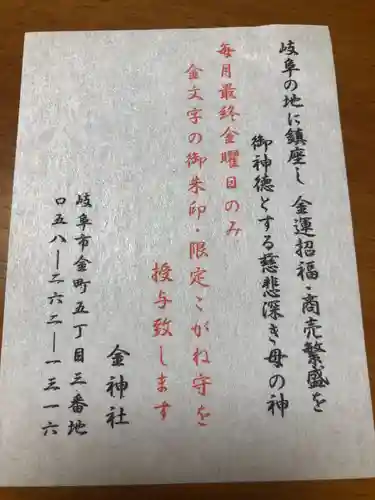 岐阜の地に鎮座し金運招福・商売繁盛を
御神徳とする慈悲深き母の神
毎月最終金曜日のみ
金文字の御朱印・限定こがね守を
授与致します
金神社
岐阜市金町五丁目三番地
〇五八―二六二―一三一六